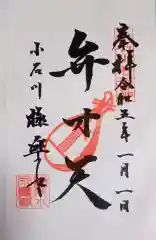 奉拝
令和五年一月一日
弁才天
小石川
極楽水